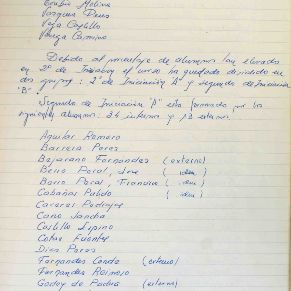 Molina
Vazquez Deus
Vega Castillo
Vanega Camino
Debido al porcentaje de alumnos tan elevados
en 2º de Iniciación el curso ha quedado dividido en
dos grupos: 2º de Iniciación "A" y segundo de Iniciación
"B"
Segundo de Iniciación "A" está formado por los
siguientes alumnos: 34 internos y 13 externos.
Aguilar Romero
Barrera Perez
Bejarano Fernandes (externo)
Berio Poral, Jose (idem)
Berio Poral, Francisco (idem)
Cabañas Pulido (idem)
Caceres
Cano Sancha
Castillo Espino
Fuentes
Diez Perez
Fernandes Conde (externo)
Fernandes Reinoso
Godoy de Padua (externo)